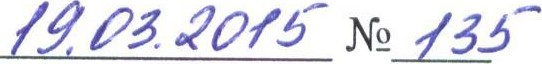 19.03.2015 № 135